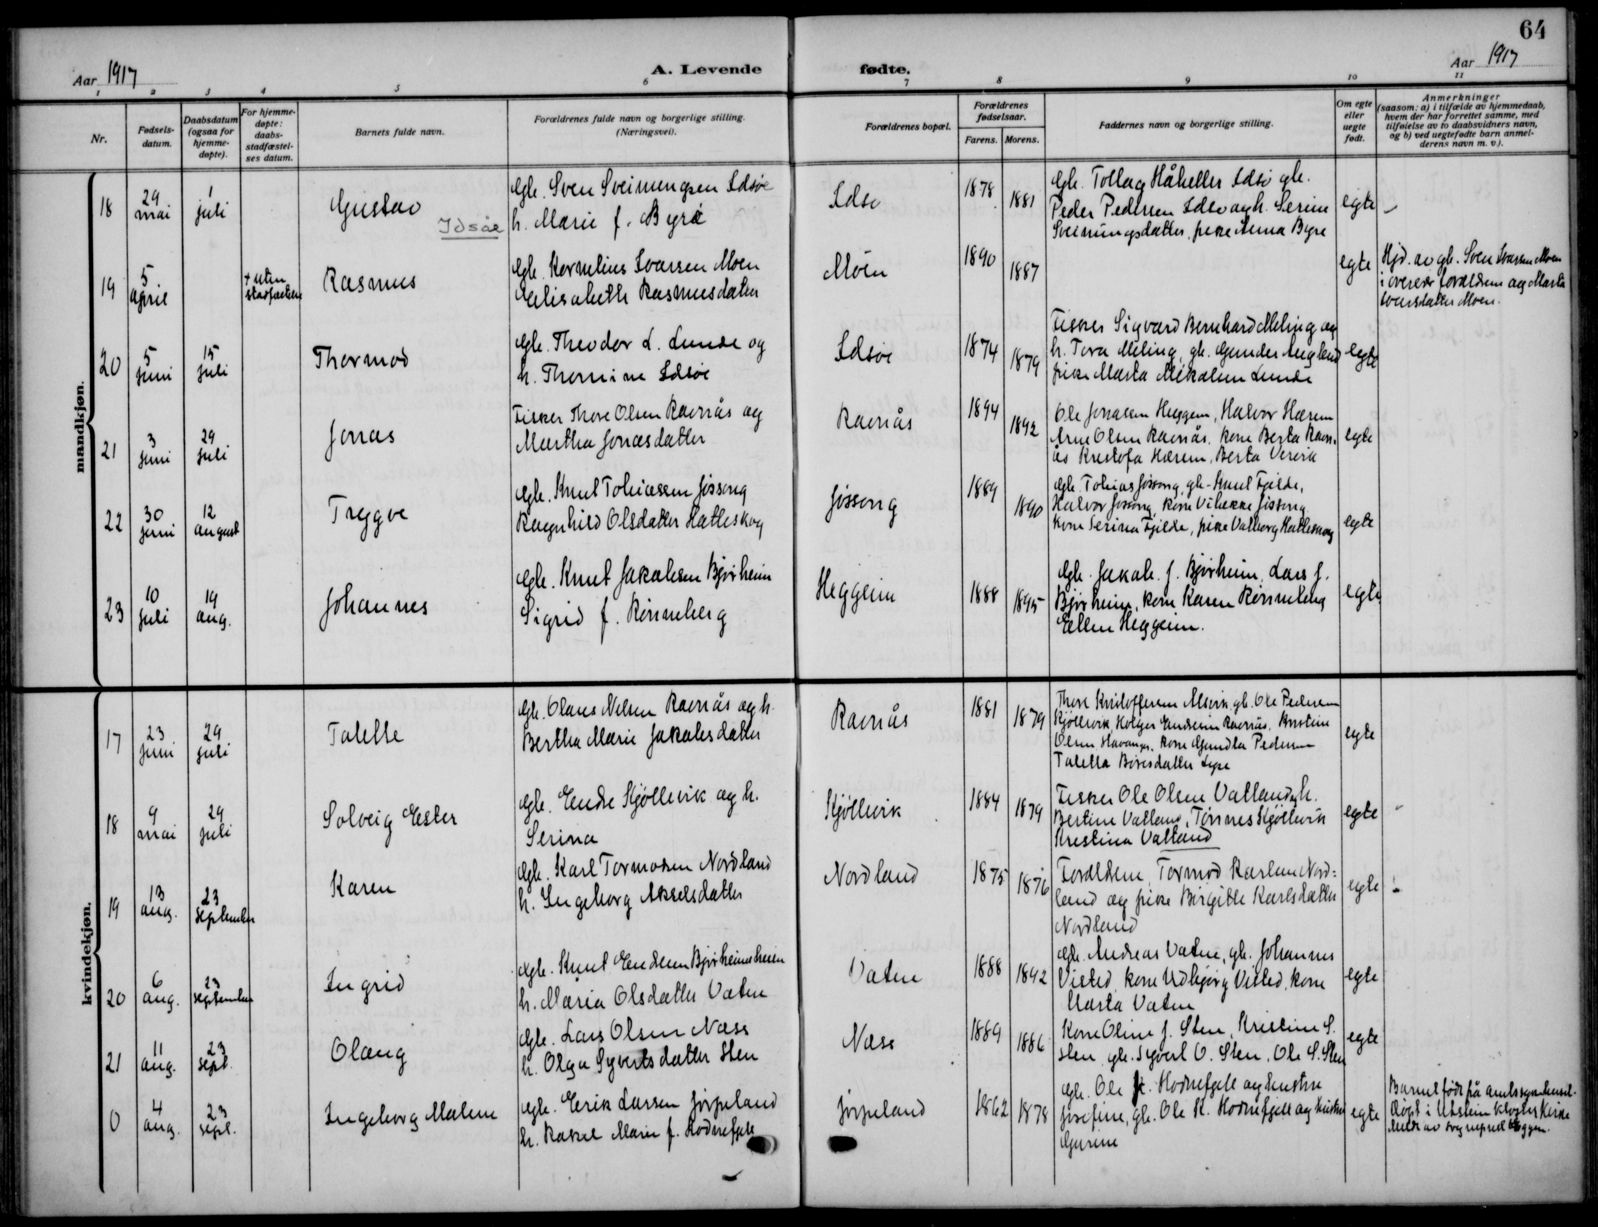 64
Aar 1917
A. Levende
fødte.
Aar 1917
1 2 3 4 5 6 7 8 9 10 11
Nr.
Fødsels-
datum.
Daabsdatum
(ogsaa for
hjemme-
døpte).
For hjemme-
døpte:
daabs-
stadfæstel-
ses datum.
Barnets fulde navn.
Forældrenes fulde navn og borgerlige stilling.
(Næringsvei).
Forældrenes bopæl.
Forældrenes
fødselsaar.
Farens. Morens.
Faddernes navn og borgerlige stilling.
Om egte
eller
uegte
født.
Anmerkninger
(saasom: a) i tilfælde av hjemmedaab,
hvem der har forrettet samme, med
tilføielse av to daabsvidners navn,
og b) ved uegtefødte barn anmel-
derens navn m. v.).
mandkjøn.
18
29
mai
1
juli
Gustav
Idsøe
Gbr. Sven Sveinungsen Idsøe
h. Marie f. Byre
Idsø
1878
1881
Gbr. Tollag Håheller Idsø gbr.
Peder Pedersen Idsø og h. Serine
Sveinungsdatter, pike Anna Byre
egte
19
5
april
Rasmus
Gbr. Kornelius Svensen Moen
Elisabeth Rasmusdatter
Moen
1890
1887
egte
Hjd. av gbr. Sven Svensen Moen
i overvær forældrene og Marta
Svensdatter Moen.
20
5
juni
15
juli
Thormod
Gbr. Theodor L. Lunde og
h. Thomine Idsøe
Idsøe
1874
1879
Fisker Sigvard Bernhard Meling og
h. Tora Meling, gbr. Gunder
pike Marta Mikaline Lunde
egte
21
3
juni
29
juli
Jonas
Fisker Thore Olsen Ravnås og
Martha Jonasdatter
Ravnås
1894
1892
Ole Jonassen Heggem, Halvor Hærem
Arne Olsen Ravnås. kone Berta Ravn-
ås Kristofa Hærem, Berta
egte
22
30
juni
12
august
Trygve
Gbr. Knut Tobiassen Jøssang
Ragnhild Olsdatter Hatleskog
Jøssang
1889
1890
Gbr. Tobias Jøssang, gbr. Knut Fjelde,
Halvor Jøssang, kone Jøssang
kone Serina Fjelde, pike Valborg Hatleskog
egte
23
10
juli
19
aug.
Johannes
Gbr. Knut Jakobsen Bjørheim
Sigrid f. Rønneberg
Heggeim
1888
1895
Gbr. Jakob. J. Bjørheim, Lars J.
Bjørheim, kone Karen Rønneberg
Ellen Heggeim.
egte
kvindekjøn.
17
23
juni
29
juli
Talette
Gbr. Olaus Nilsen Ravnås og h.
Bertha Marie Jakobsdatter
Ravnås
1881
1879
Thore Kristoffersen gbr. Ole Pedersen
Kjøllevik, Holger Ravnås,
Olsen Stavanger, kone Gundla Pedersen
Taletta
egte
18
9
mai
29
juli
Solveig Ester
Gbr. Endre Kjøllevik og h.
Serina
Kjøllevik
1884
1879
Fisker Ole Olsen Valland og h.
Bertine Valland, Tønnes Kjøllevik
Kristina Valland
egte
19
13
aug.
23
september
Karen
Gbr. Karl Tormodsen Nordland
h. Ingeborg Akselsdatter
Nordland
1875
1876
Forældrene, Tormod Karlsen Nord-
land og pike Birgitte Karlsdatter
Nordland
egte
20
6
aug.
23
september
Ingrid
Gbr. Knut Endresen Bjørheimsheien
h. Maria Olsdatter Vatne
Vatne
1888
1892
Gbr. Andreas Vatne, gbr. Johannes
Visted, kone Udbjørg Visted, kone
Marta Vatne
egte
21
11
aug.
23
sept.
Olaug
Gbr. Lars Olsen Næss
h. Olga Syvertsdatter Sten
Næss
1889
1886
Kone Oline J. Sten, Kristine S.
Sten gbr. Syvert O. Sten, Ole S. Sten
egte
0
4
aug.
23
sept.
Ingeborg Malene
Gbr. Erik Larsen Jørpeland
h. Rakel Marie f. Hodnefjell
Jørpeland
1862
1878
Gbr. Ole Hodnefjell og hustru
Josefine, gbr. Ole K. Hodnefjell og hustru
Gurine
egte
Barnet født på amtssykehuset.
Døpt i Utstein kloster kirke